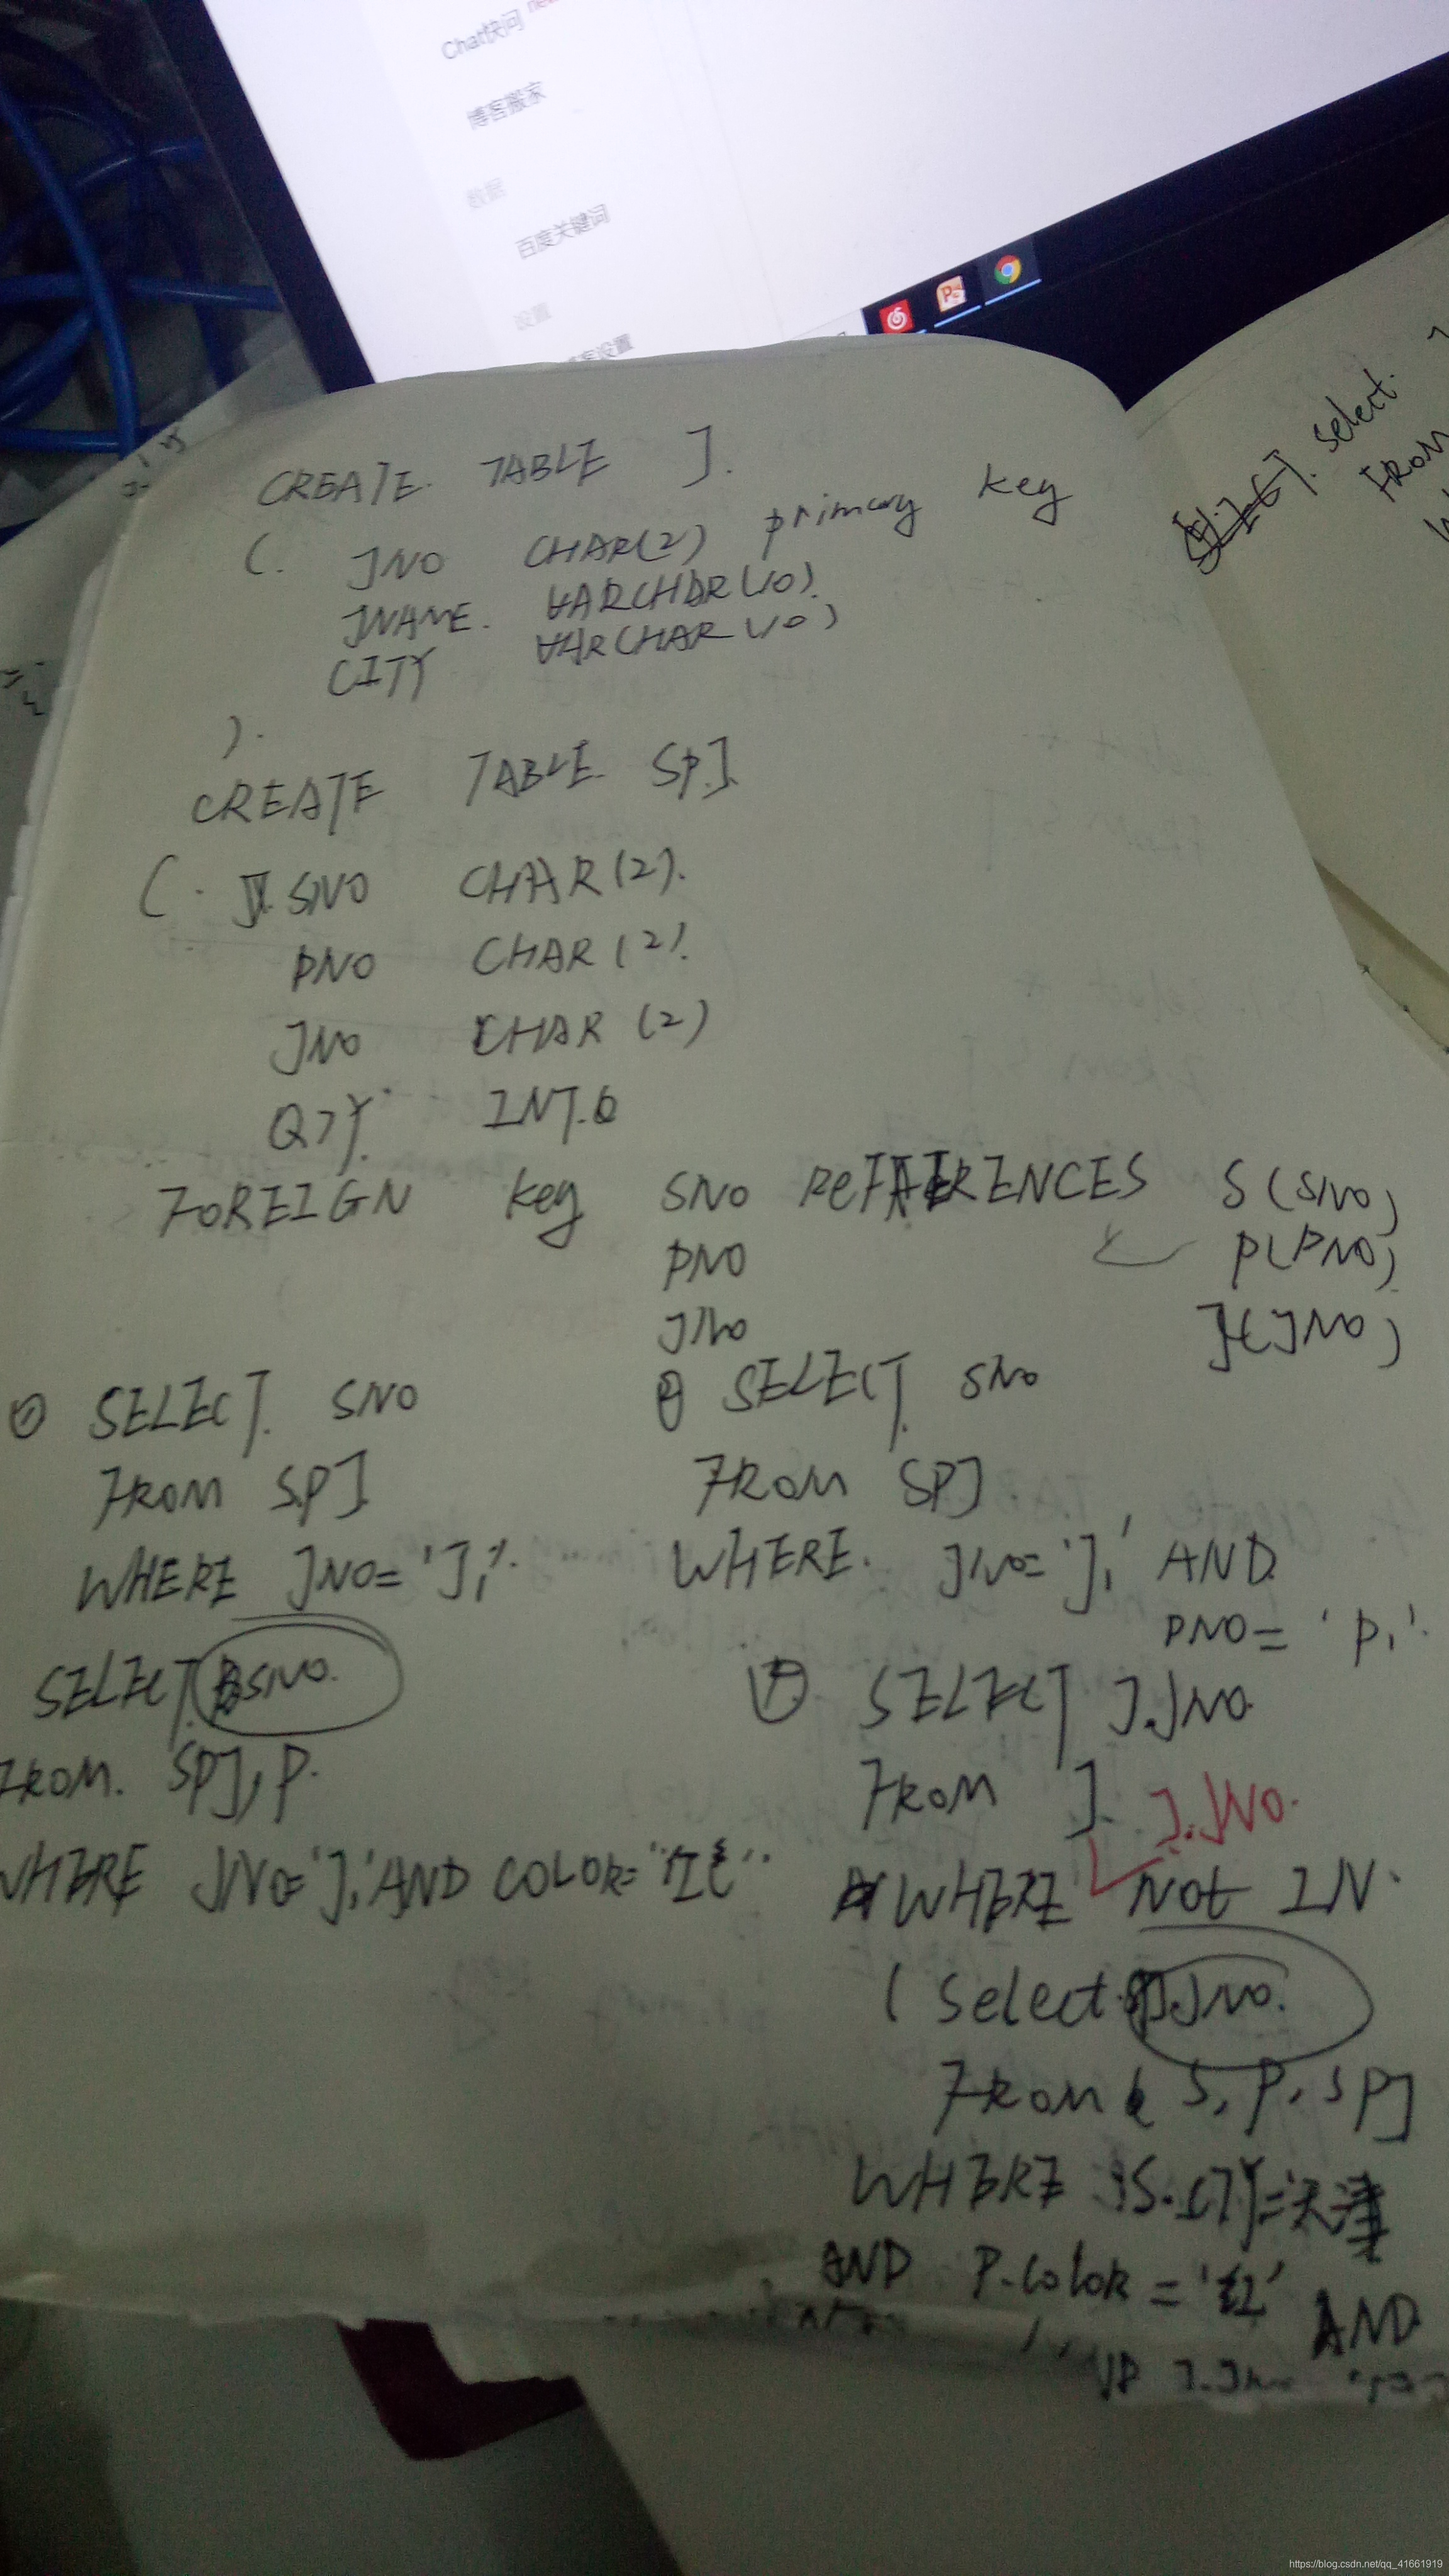 Chat快问 new
博客搬家
数据
百度关键词
设置
CREATE. TABLE J.
(. JNO CHAR(2) primary key
JNAME. VARCHAR(10).
CITY VARCHAR(10)
).
CREATE TABLE SPJ
( SNO CHAR(2).
PNO CHAR(2).
JNO CHAR(2)
QTY. INT.
FOREIGN key SNO REFERENCES S(SNO)
PNO P(PNO)
JNO J(JNO)
SELECT. SNO
FROM SPJ
WHERE JNO='J1'.
SELECT SNO.
FROM. SPJ, P.
WHERE JNO='J1' AND COLOR="红色"
② SELECT SNO
FROM SPJ
WHERE. JNO='J1' AND
PNO='P1'.
④ SELECT J.JNO.
FROM J. J.JNO.
WHERE Not IN.
(Select SPJ.JNO.
FROM S, P, SPJ
WHERE S.CITY=天津
AND P.COLOR='红' AND
select.
FROM
https://blog.csdn.net/qq_41661919